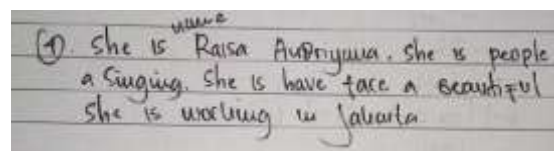 name
①. She is Raisa Aupriyana. She is people
a Singing. She is have face a Beautiful
She is working in Jakarta